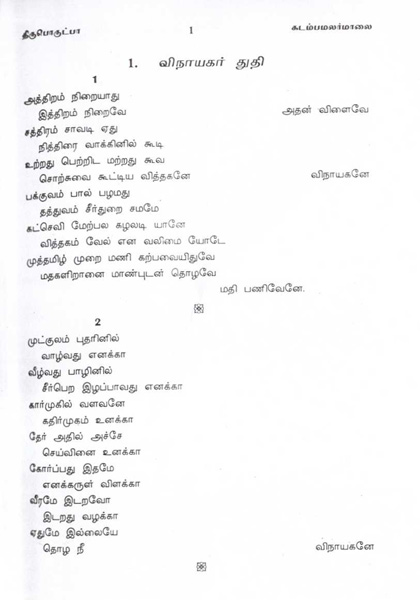 திருபொகுட்பா 1 கடம்பமலர்மாலை
1. விநாயகர் துதி
1
அத்திறம் நிறையாது
இத்திறம் நிறைவே அதன் விளைவே
சத்திரம் சாவடி ஏது
நித்திரை வாக்கினில் கூடி
உற்றது பெற்றிட மற்றது கூவ
சொற்சுவை கூட்டிய வித்தகனே விநாயகனே
பக்குவம் பால் பழமது
தத்துவம் சீர்துறை சமமே
கட்செவி மேற்பல கழலடி யானே
வித்தகம் வேல் என வலிமை யோடே
முத்தமிழ் முறை மணி கற்பவையிதுவே
மதகளிறானை மாண்புடன் தொழவே
மதி பணிவேனே.
2
முட்குலம் புதரினில்
வாழ்வது எனக்கா
வீழ்வது பாழினில்
சீர்பெற இழப்பாவது எனக்கா
கார்முகில் வளவனே
கதிர்முகம் உனக்கா
தேர் அதில் அச்சே
செய்வினை உனக்கா
கோர்ப்பது இதமே
எனக்கருள் விளக்கா
வீரமே இடறவோ
இடறது வழக்கா
ஏதுமே இல்லையே
தொழ நீ விநாயகனே